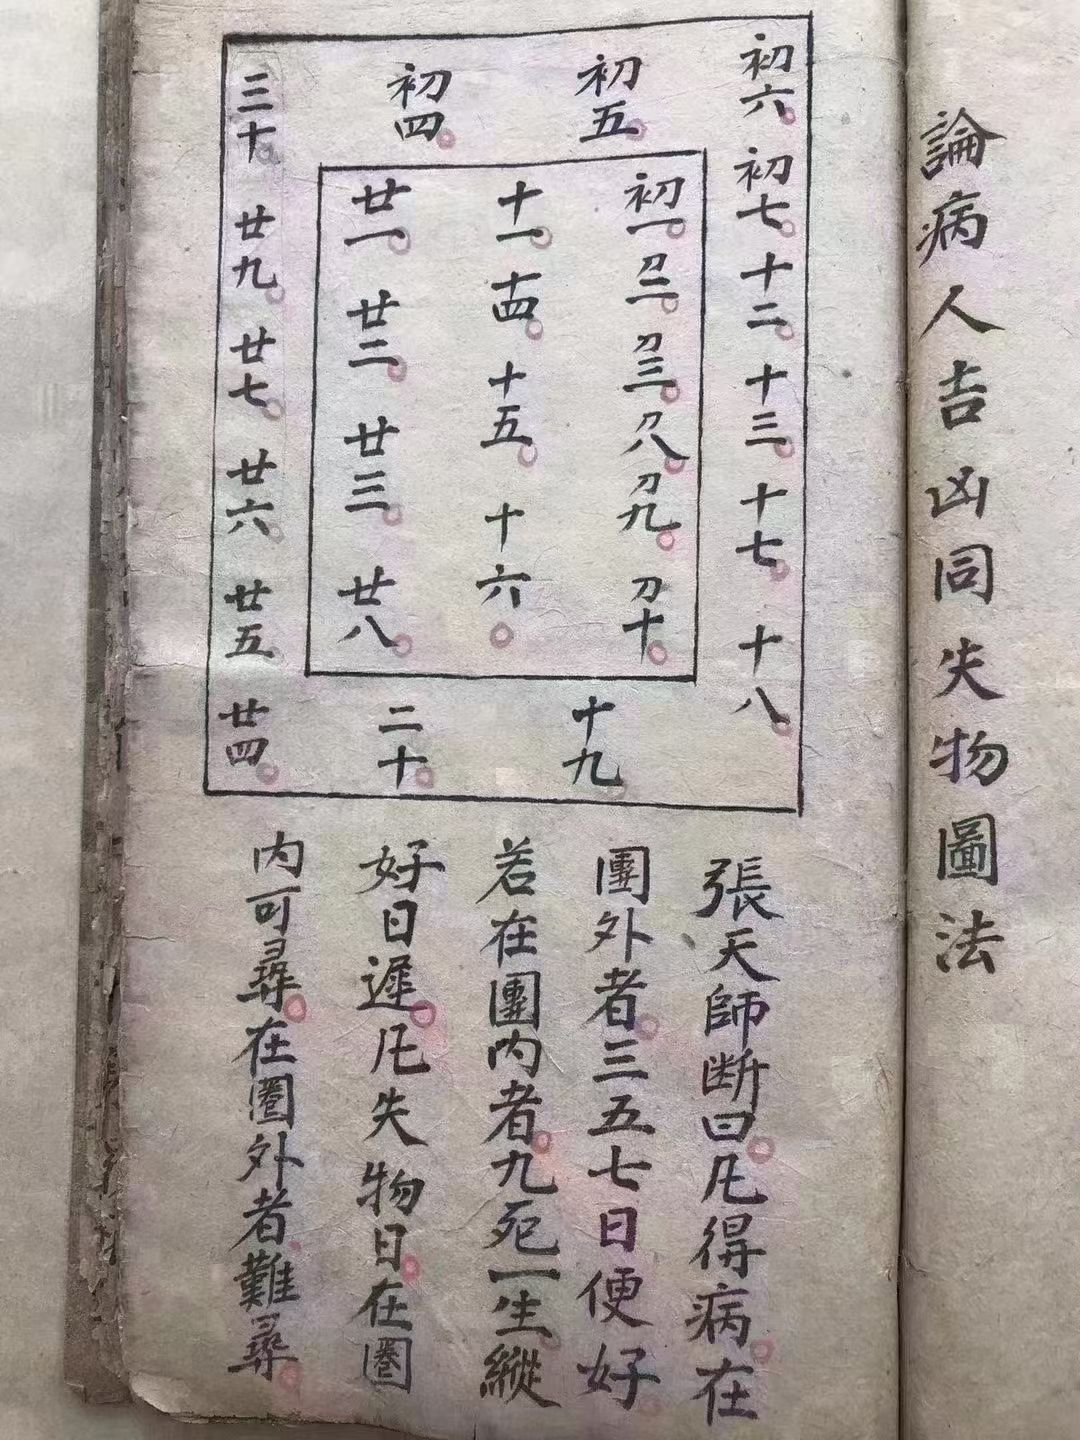 論病人吉凶同失物圖法
初六 初七 十二 十三 十七 十八
初五
初四
三十 廿九 廿七 廿六 廿五 廿四
初一 刀二 刀三 刀八 刀九 刀十
十一 十四 十五 十六
廿一 廿二 廿三 廿八
十九
二十
張天師断曰凡得病在
圈外者三五七日便好
若在圈内者九死一生縱
好日遲凡失物日在圈
内可尋在圈外者難尋